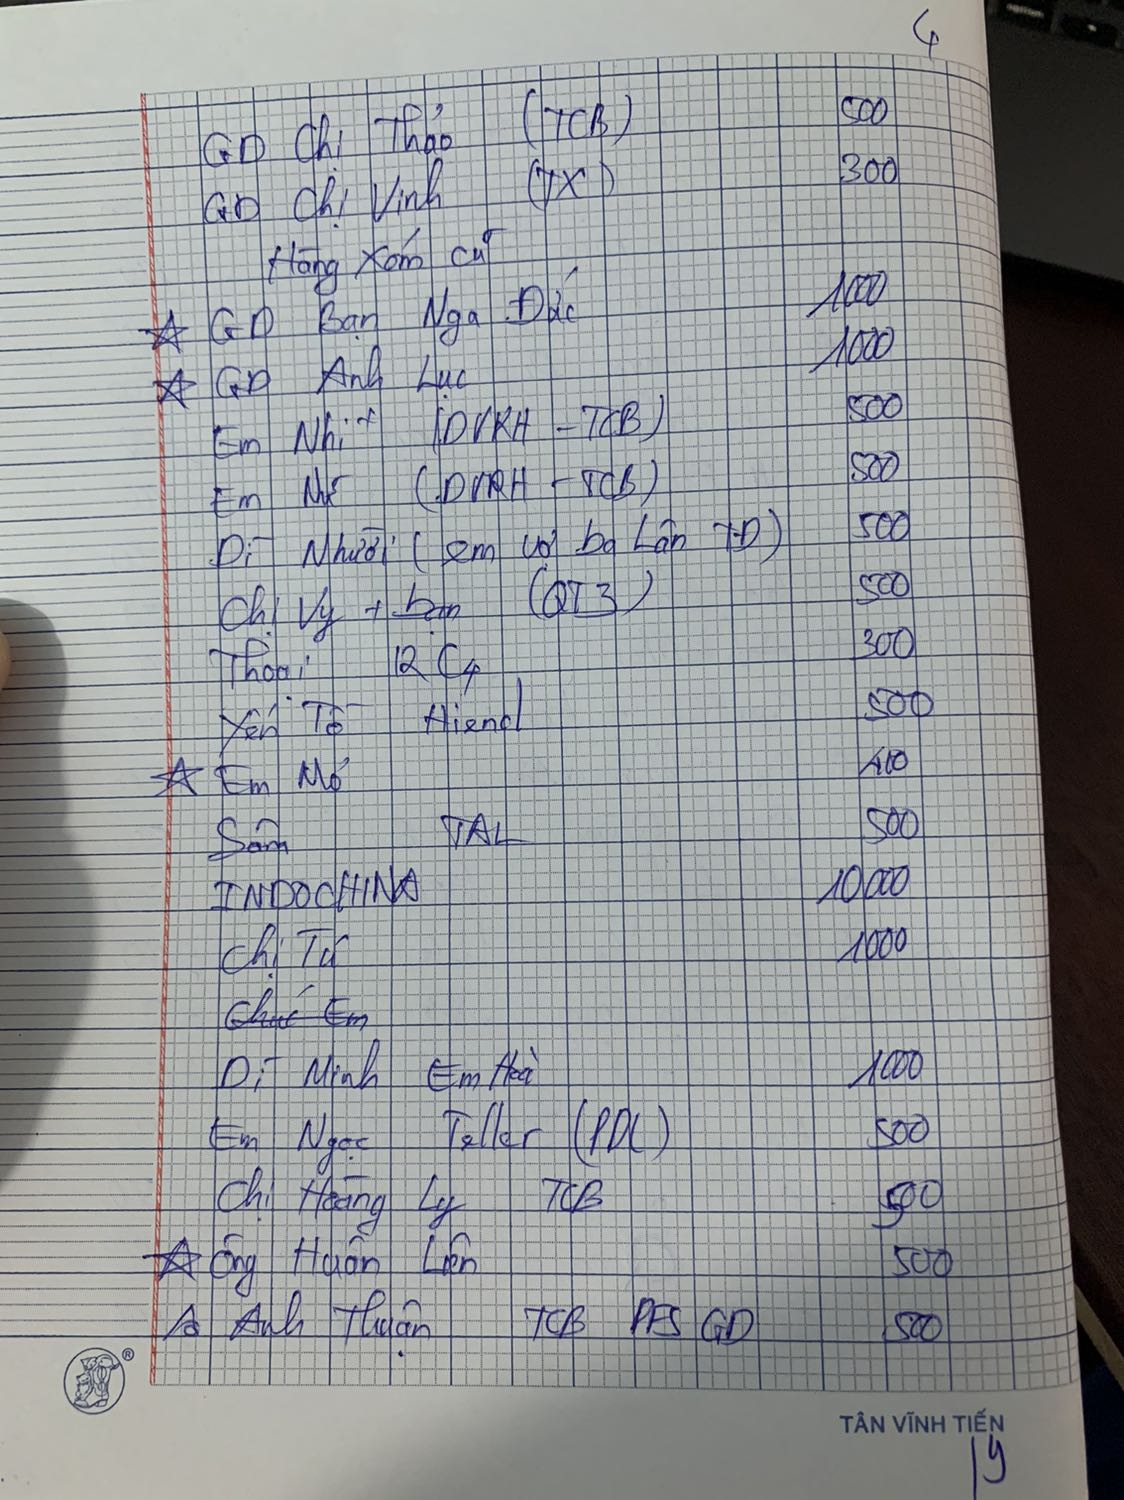 4
GD Chị Thảo (TCB) 500
GD Chị Vinh (TX) 300
Hàng Xóm cũ
☆ GD Bạn Nga Đức 1000
☆ GD Anh Lục 1000
Em Nhi (DVKH - TCB) 500
Em (DVKH - TCB) 500
Dì Mười (em vợ ba Lân TD) 500
Chị Vy + bạn (QT3) 500
Thoại 12 C4 300
Yến Tô Hiend 500
☆ Em Mó 400
Sâm TAL 500
INDOCHINA 10000
Chị Tư 1000
Chú Em
Dì Minh Em 1000
Em Ngọc Teller (PDL) 500
Chị Hoàng Ly TCB 500
☆ Ông Huấn Liên 500
Anh Thuận TCB PFS GD 500
®
TÂN VĨNH TIẾN
19